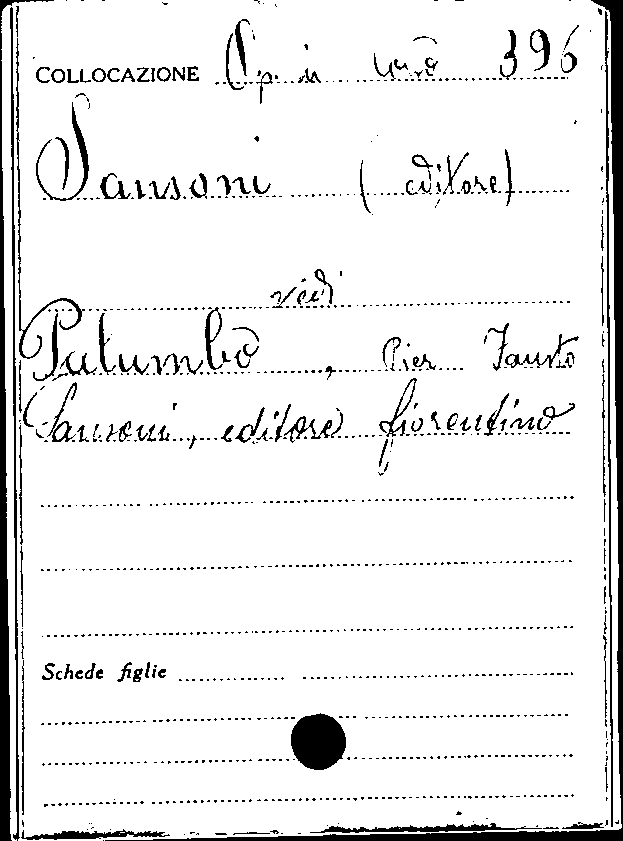 COLLOCAZIONE Op. in 396
Sansoni (editore)
vedi
Palumbo, Pier Fausto
Sansoni, editore fiorentino
Schede figlie